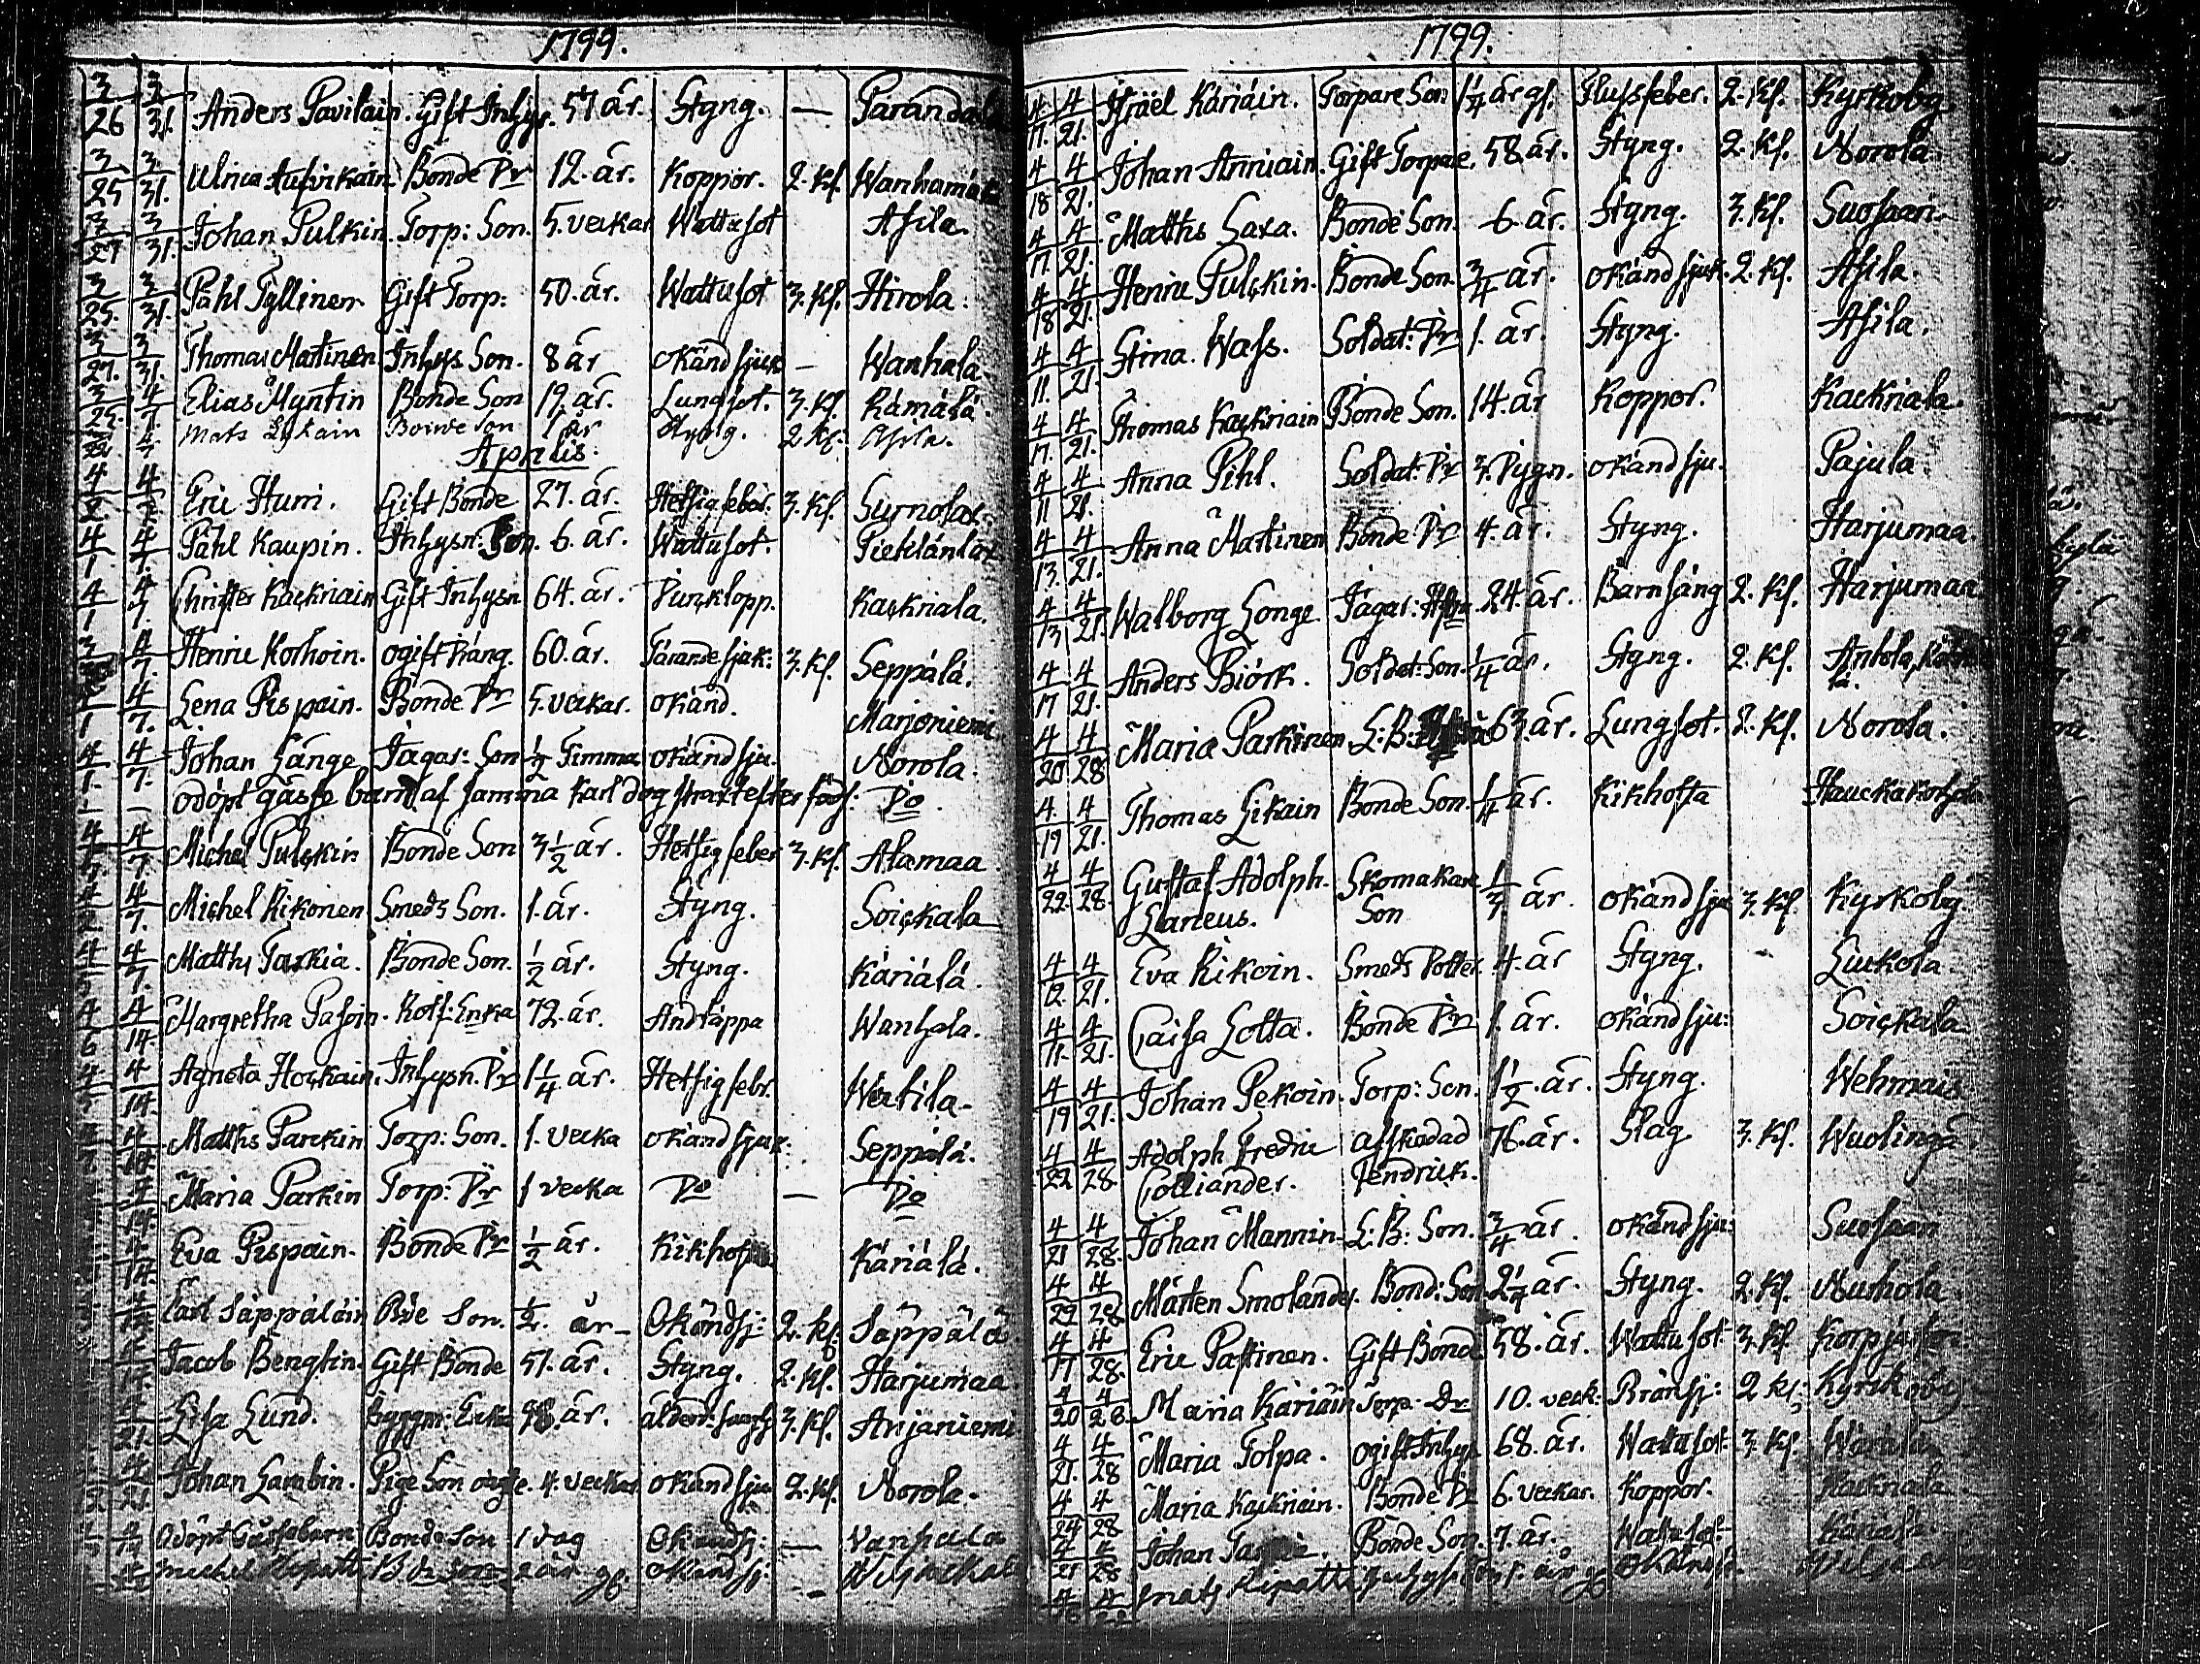 1799.
3/26 3/31. Anders Pavilain. Gift Inhys. 57 år. Styng. — Parandala
3/25 3/31. Ulrica Hufvikain Bonde Dr 12. år. Koppor. 2. Kl. Wanhamäk
3/27 3/31. Johan Pulkin. Torp: Son. 5. veckar Wattusot Asila.
3/25. 3/31. Påhl Tyllinen Gift Torp: 50. år. Wattusot 3. Kl. Hirola.
3/27. 3/31. Thomas Martinen Inhys Son. 8 år okänd sjuk — Wanhala.
3/25. 4/7. Elias Myntin Bonde Son 19. år. Lungsot. 3. Kl. Rämälä.
Mats Likain Bonde Son 1 år Styng. 2 Kl: Asila.
Aprilis.
4/2 4/7 Eric Hurri. Gift Bonde 27. år. Hetsig feber. 3. Kl.
4/1. 4/7. Påhl Kaupin. Inhysn: Son. 6. år. Wattusot. Pieklänlax
4/1 4/7. Christer Kackriain Gift Inhysn 64. år. Kackriala.
4/7. Henric Korhoin. ogift Dräng. 60. år. Tärande sjuk: 3. Kl. Seppälä.
4/1 4/7. Lena Pispain. Bonde Dr 5. veckar. okänd. Marjoniemi
4/1. 4/7. Johan Länge Jägar: Son ½ Timma okänd sju. Norola.
odöpt gåsse barn af samma Karl dog strax efter föds. Do.
4/7. Michel Pulckin Bonde Son 3½ år. Hetsig feber 3. Kl. Alamaa
4/2 4/7. Michel Rikonen Smeds Son. 1. år. Styng. Soickala
4/5 4/7. Matths Taskia. Bonde Son. ½ år. Styng. Käriälä.
4/6 4/14. Margretha Pasoin. Rotf: Enka 72. år. Andtäppa Wanhala.
4/14. Agneta Hockain. Inhysn. Dr 1¼ år. Hetsig febr. Wertila.
4/14. Matths Parckin Torp: Son. 1. vecka okänd sjuk: Seppälä.
4/14. Maria Parkin Torp: Dr 1 vecka Do — Do
4/14. Eva Pispain. Bonde Dr ½ år. Kikhosta Käriälä.
Carl Säppäläin Bde Son. ½. år Okändsj: 2. Kl. Säppälä
Jacob Bengtin. Gift Bonde 51. år. Styng. 2. Kl. Harjumaa
4/21. Lisa Lund. Enka år. 3. Kl. Anjaniemi
4/21. Johan Lambin. Pige Son oägte. 4. veckar okänd sju. 2. Kl. Norola.
Odöpt Gåssebarn Bonde Son 1 dag Okändsj: — Vanhala
Michel Bde Son 2 år gl. Okändsj: —
1799.
4/17. 4/21. Israël Käriäin. Torpare Son 1¼ år gl. Flussfeber. 2. Kl. Kyrkoby
4/18 4/21. Johan Anniain. Gift Torpae. 58. år. Styng. 2. Kl. Norola
4/17. 4/21. Matths Saxa. Bonde Son. 6. år. Styng. 3. Kl. Suosaari.
4/18 4/21. Henric Pulckin. Bonde Son. ¾ år. okänd sjuk. 2. Kl. Asila.
4/11. 4/21. Stina. Wass. Soldat: Dr 1. år. Styng. Asila.
4/17. 4/21. Thomas Kackriain Bonde Son. 14. år Koppor. Kackriala
4/11 4/21. Anna Pihl. Soldat: Dr 3. Dygn. okänd sju. Pajula.
4/13. 4/21. Anna Martinen Bonde Dr 4. år. Styng. Harjumaa.
4/13 4/21. Walborg Longe Jägar: 24. år. Barnsäng 2. Kl. Harjumaa
4/17 4/21. Anders Biörk. Soldat: Son. ¼ år. Styng. 2. Kl. Antola,
4/20 4/28 Maria Parkinen L: B: 63. år. Lungsot. 2. Kl. Norola.
4/19 4/21. Thomas Likain Bonde Son. ¼ år. Kikhosta Hauckakorhola
4/22. 4/28. Gustaf Adolph. Skomakare ⅓ år. okänd sju 3. Kl. Kyrkoby.
Laneus. Son
4/12. 4/21. Eva Rikoin. Smeds Dotter. 4. år Styng. Luckola
4/11. 4/21. Caisa Lotta. Bonde Dr 1. år. okänd sju: Soickala
4/19 4/21. Johan Pekoin. Torp: Son. 1½. år. Styng. Wehmais
4/22 4/28. Adolph Fredric afskedad 76. år. Slag 3. Kl. Wuolinga
Colliander. Fendrick.
4/21 4/28. Johan Mannin. L: B: Son. ¾ år. okänd sju: Suosaari
4/22 4/28 Mårten Smolander. Bond: Son. 2¼ år. Styng. 2. Kl. Nurhola
4/17 4/28. Eric Pastinen. Gift Bond. 58. år. Wattusot. 3. Kl. Korpjärfvi
4/20 4/28. Maria Käriäin Torp. Dr 10. veck: Bröstsj: 2 Kl: Kyrckoby
4/21. 4/28 Maria Tolpa. ogift Inhys. 68. år. Wattusot. 3. Kl.
4/24 4/28 Maria Kackriain. Bonde Dr 6. veckar. Koppor. Kackriala
4/21 4/28 Johan Taskia. Bonde Son. 7. år. Wattusot. Käriälä
Mats Ripatti